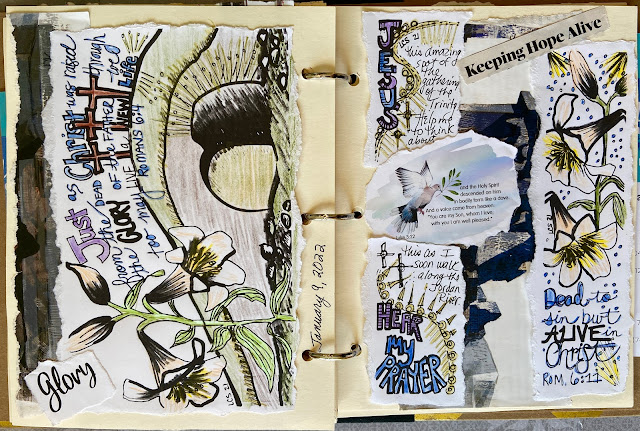 Just as Christ was raised
from the DEAD through
the GLORY OF the FATHER we
too may LIVE a NEW Life
ROMANS 6:4
LCS 21
LCS 21
Glory
January 9, 2022
JESUS
LCS 21
this amazing
spot of
the
gathering
of the
Trinity
Help me
to think
about
Keeping Hope Alive
and the Holy Spirit
descended on him
in bodily form like a dove.
And a voice came from heaven:
"You are my Son, whom I love,
with you I am well pleased."
3:22
this as I
soon walk
along the
Jordan
River.
HEAR
my
PRAYER
LCS 21
Dead to
sin but
ALIVE in
Christ
ROM. 6:11